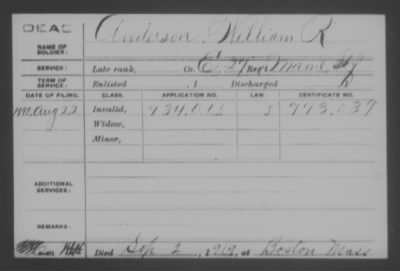 DEAD
Anderson, William R
NAME OF
SOLDIER:
SERVICE:
Late rank, Co. E, 27 Reg't Maine Inf
TERM OF
SERVICE:
Enlisted , 1 Discharged , 1
DATE OF FILING.
CLASS.
APPLICATION NO.
LAW.
CERTIFICATE NO.
1890, Aug 22
Invalid,
934,015
J
773,037
Widow,
Minor,
ADDITIONAL
SERVICES:
REMARKS:
Died Sep 2, 1919, at Boston Mass